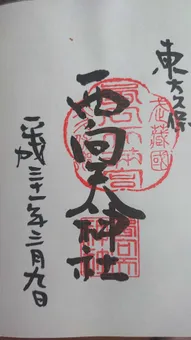 東大久保
武藏國
西向天神社
平成三十一年三月九日